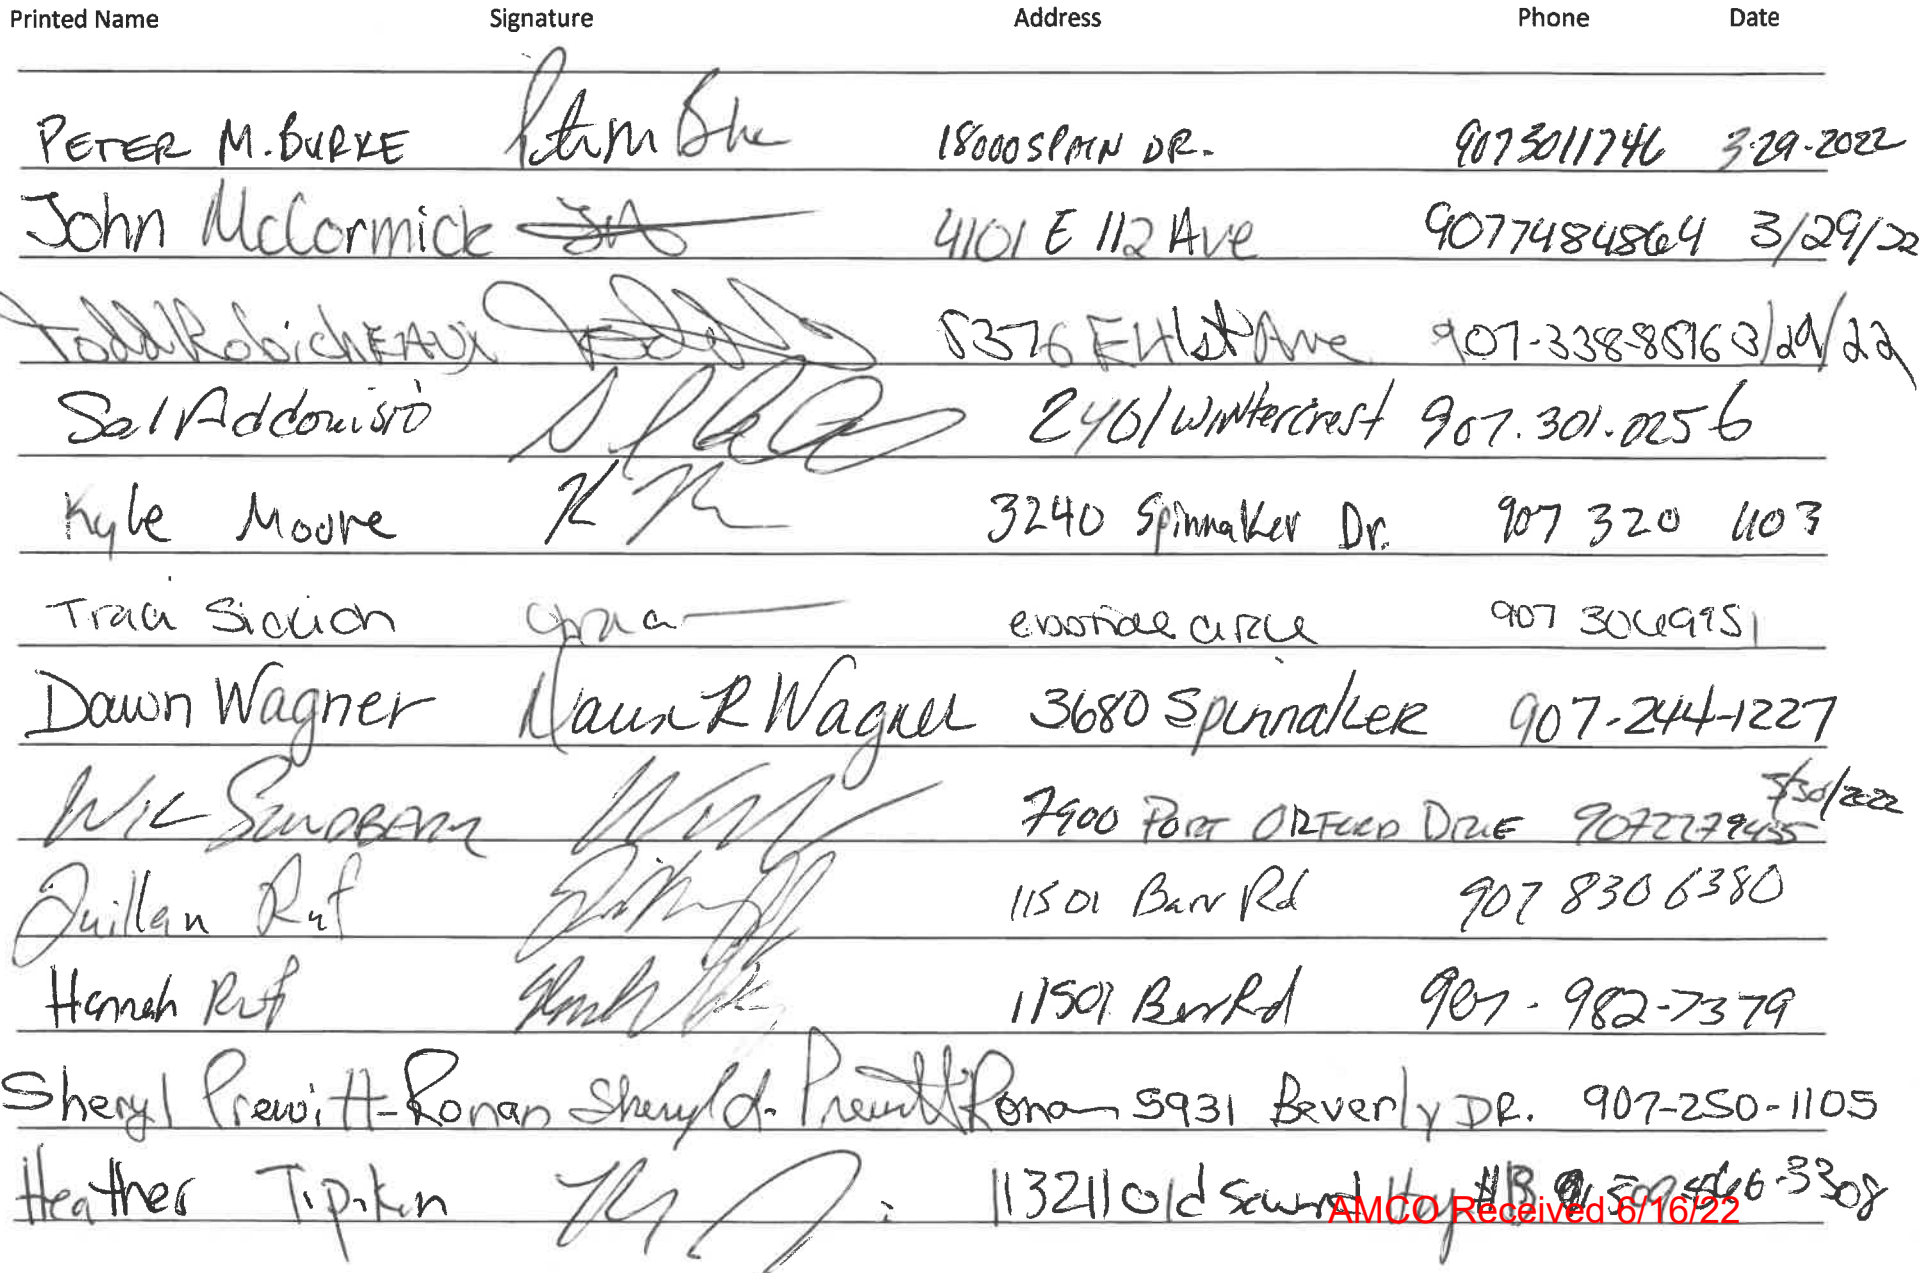 Printed Name Signature Address Phone Date
PETER M. BURKE 18000 SPAIN DR. 9073011746 3-29-2022
John McCormick 4101 E 112 Ave 9077484864 3/29/22
Todd RobichEAUX 8376 E 41st Ave 907-338-8596 3/29/22
Sal Addonisio 2401 Wintercrest 907.301.0256
Kyle Moore 3240 Spinnaker Dr. 907 320 1103
Traci 907
Dawn Wagner Dawn R Wagner 3680 Spinnaker 907-244-1227
WIL SUNDBERG 7900 PORT ORFORD DRIVE 5/30/2022
Quillan Ruf 11501 Barr Rd 907 830 6380
Hannah Ruf 11501 Barr Rd 907-982-7379
Sheryl Prewitt-Ronan Sheryl d. Prewitt Ronan 5931 Beverly DR. 907-250-1105
Heather Tipikin 11321 Old Seward Hy #B
AMCO Received 6/16/22